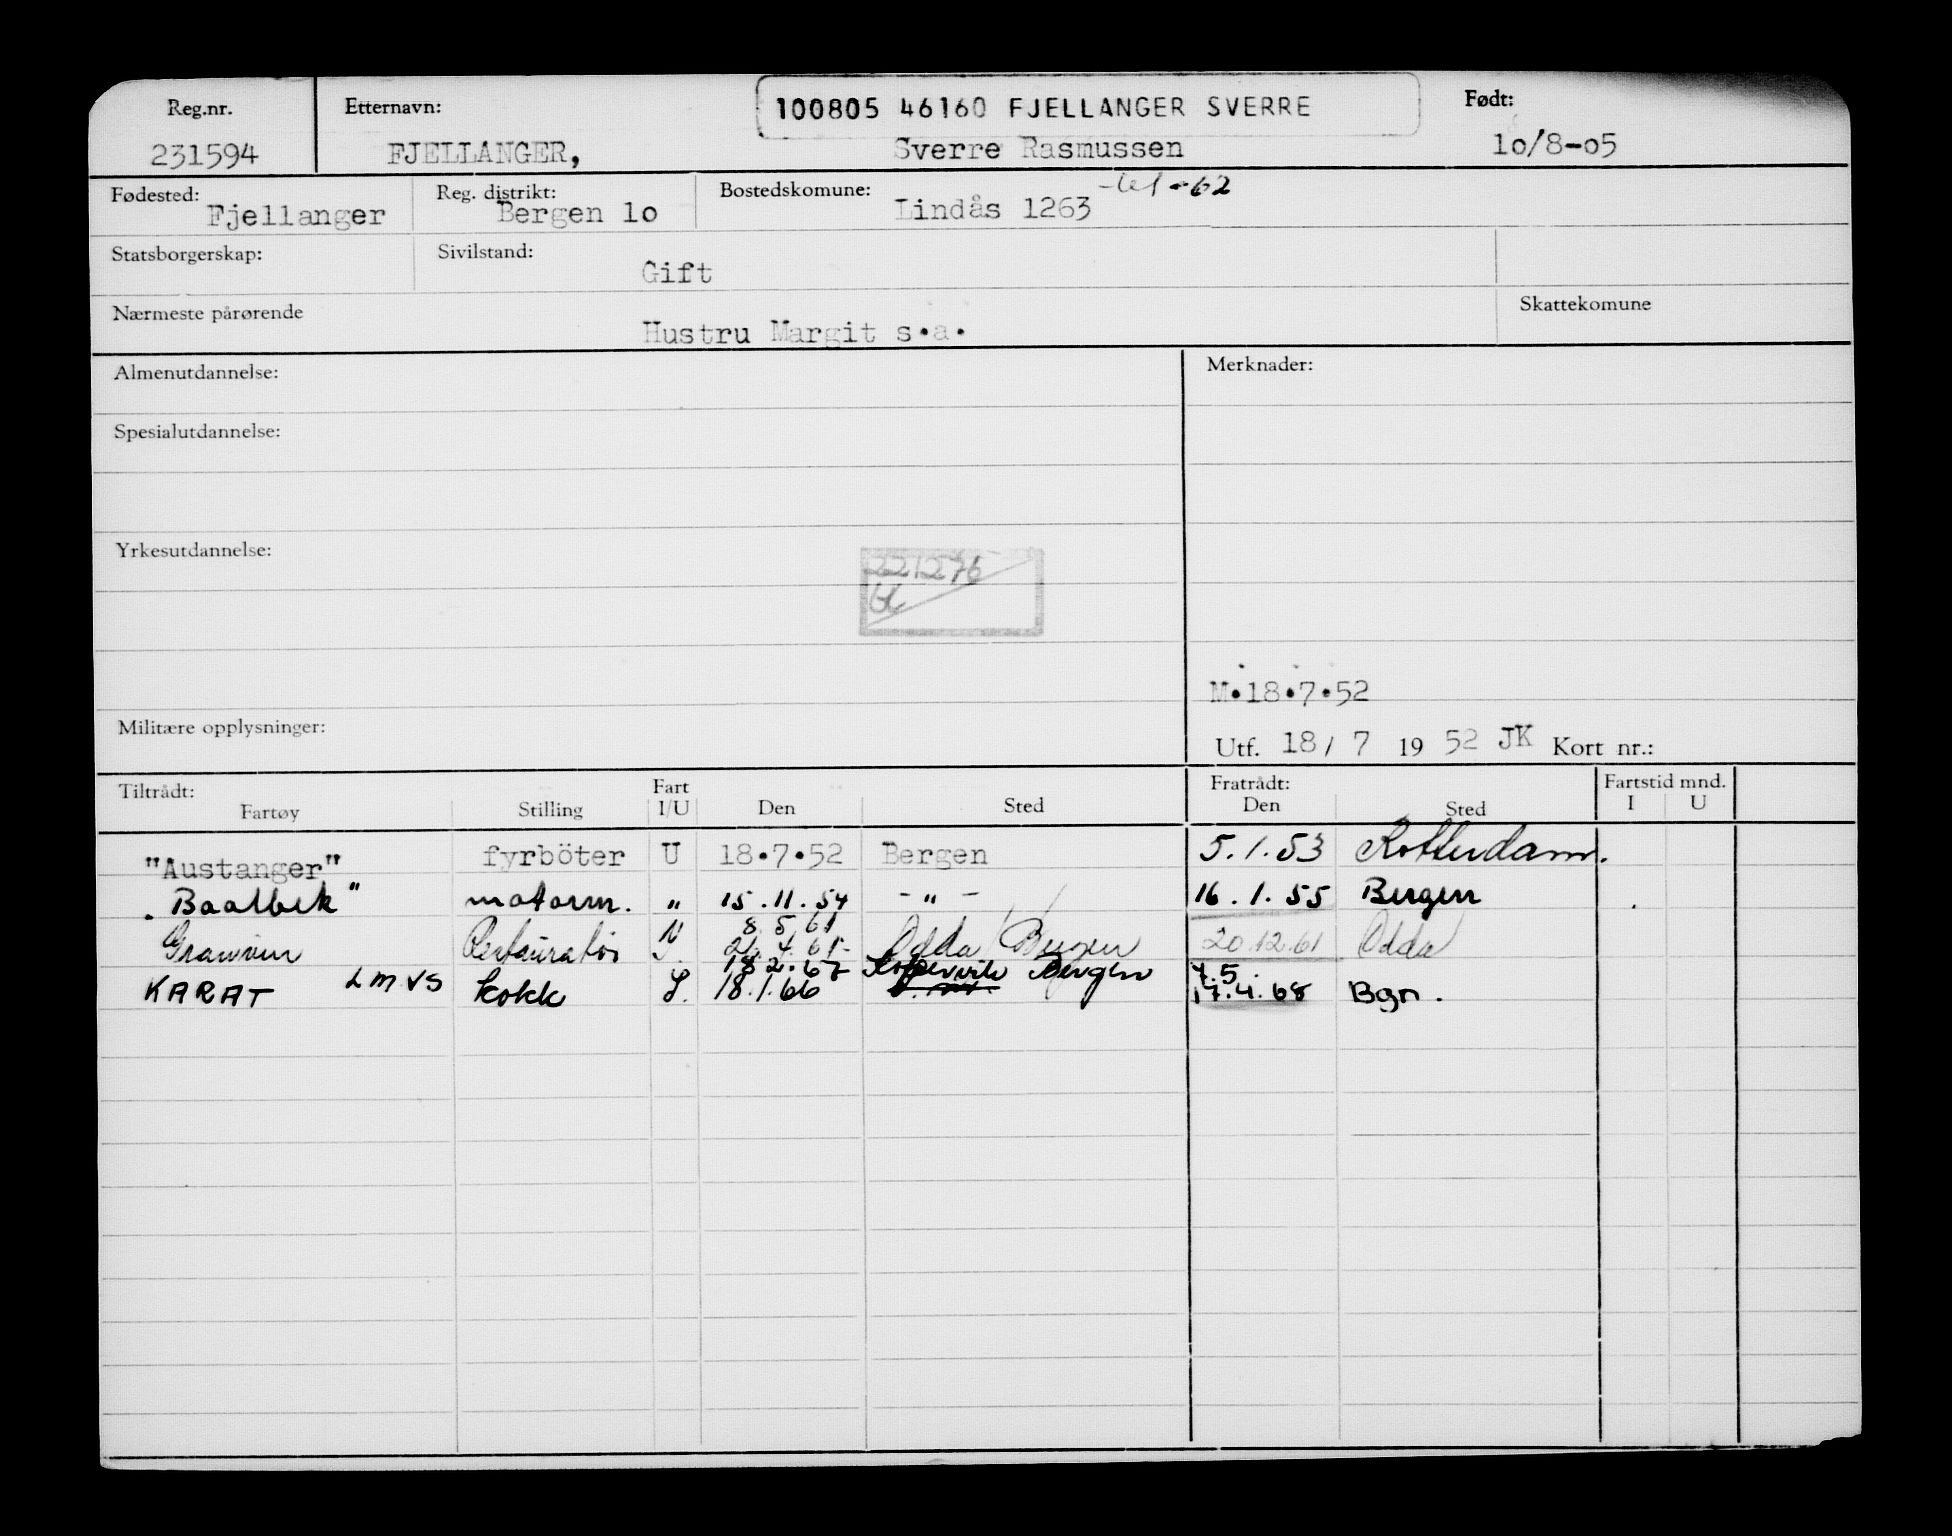 Reg.nr. Etternavn: 100805 46160 FJELLANGER SVERRE Født:
231594 FJELLANGER, Sverre Rasmussen 10/8-05
Fødested: Reg. distrikt: Bostedskomune: -62
Fjellanger Bergen 10 Lindås 1263
Statsborgerskap: Sivilstand:
Gift
Nærmeste pårørende Skattekomune
Hustru Margit s.a.
Almenutdannelse: Merknader:
Spesialutdannelse:
Yrkesutdannelse:
221276
M.18.7.52
Militære opplysninger:
Utf. 18/ 7 19 52 JK Kort nr.:
Tiltrådt: Fart Fratrådt: Fartstid mnd.
Fartøy Stilling I/U Den Sted Den Sted I U
"Austanger" fyrböter U 18.7.52 Bergen 5.1.53 Rotterdam.
"Baalbek" motorm. " 15.11.54 - " - 16.1.55 Bergen
8.5.61
Granvin Restauratør Odda Bergen 20.12.61 Odda
18.2.67 Kopervik Bergen 7.5.
KARAT LMVS kokk S. 18.1.66 17.4.68 Bgn.